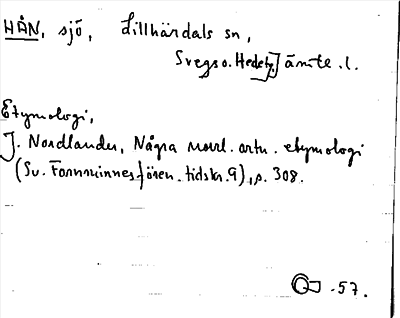 HÅN, sjö, Lillhärdals sn,
Svegs o. Hedes, Jämtl. l.
Etymologi,
J. Nordlander, Några norrl. ortn. etymologi
(Sv. Fornminnesfören. tidskr. 9), s. 308.
-57.